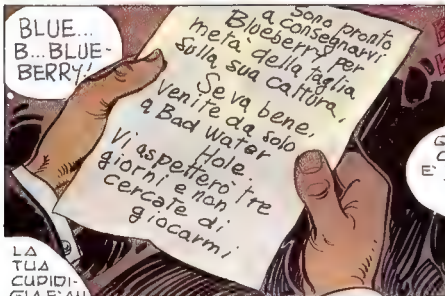 BLUE...
B...BLUE-
BERRY!
Sono pronto
a consegnarvi
Bloeberry per
metà della taglia
sulla sua cattura,
Se va bene,
venite da solo
a Bad Water
Hole.
Vi aspetterò tre
giorni e non
cercate di
giocarmi
LA
TUA
CUPIDI-